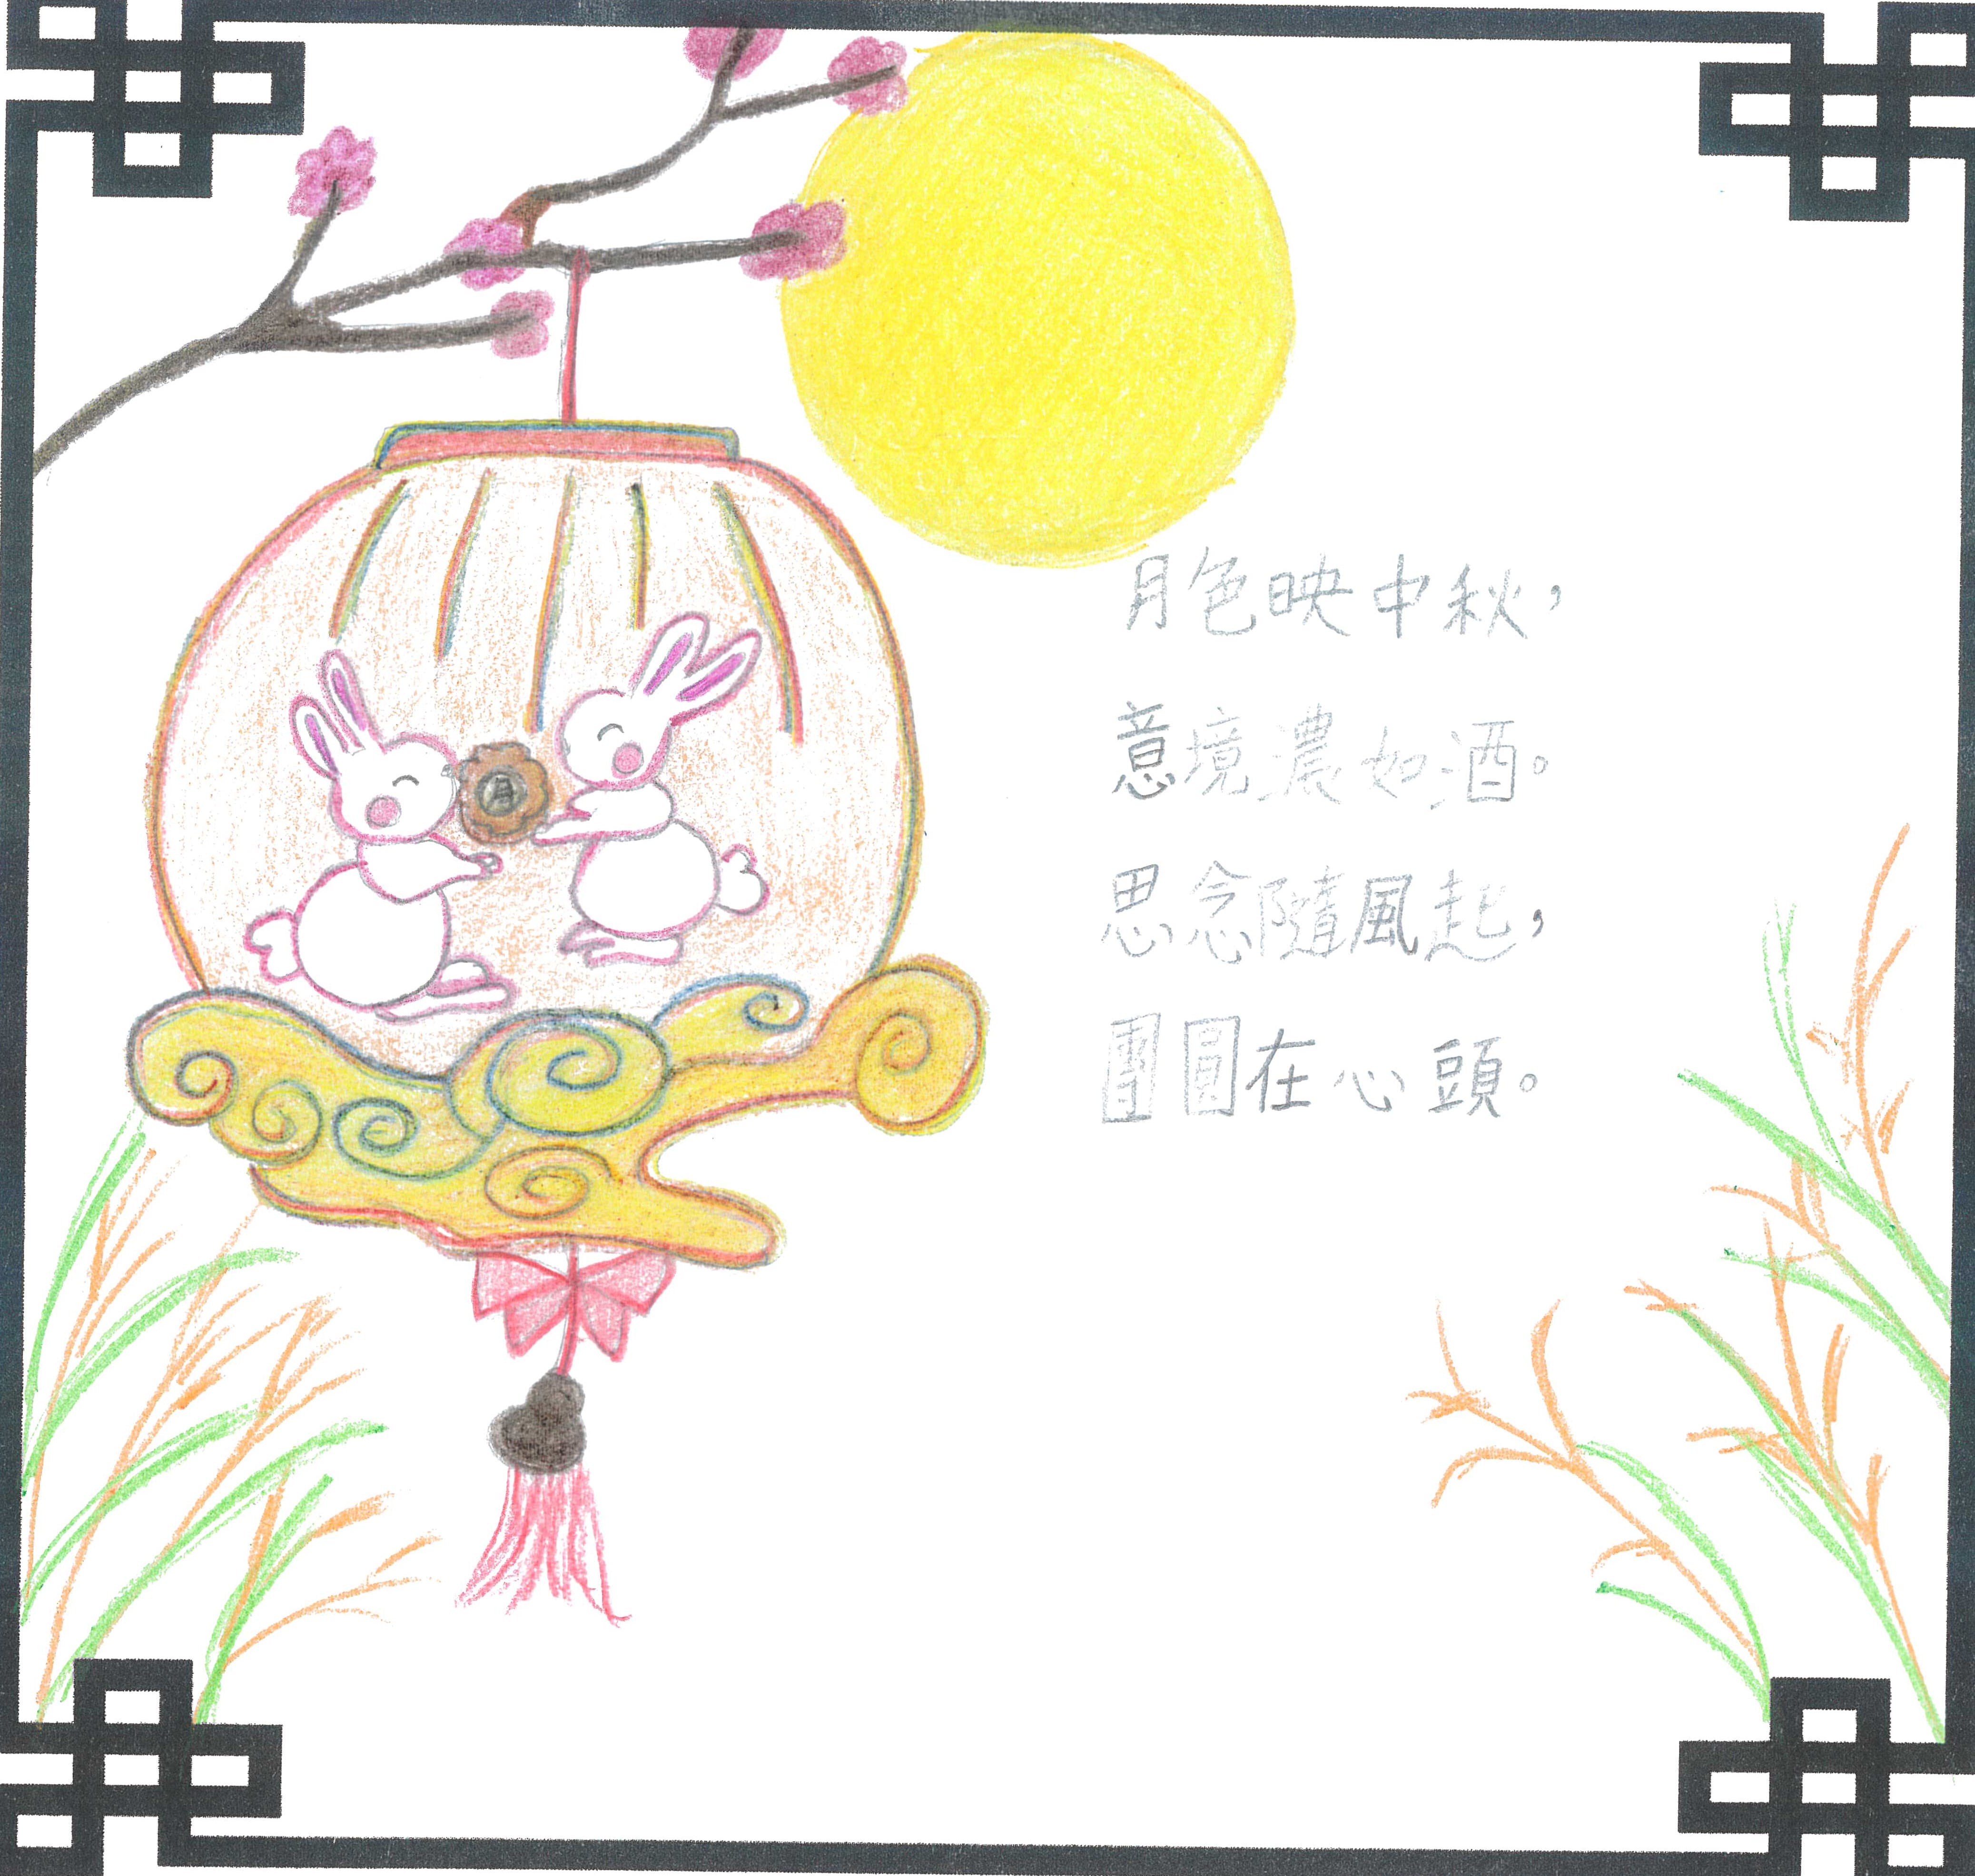 月色映中秋，
意境濃如酒。
思念隨風起，
團圓在心頭。
月